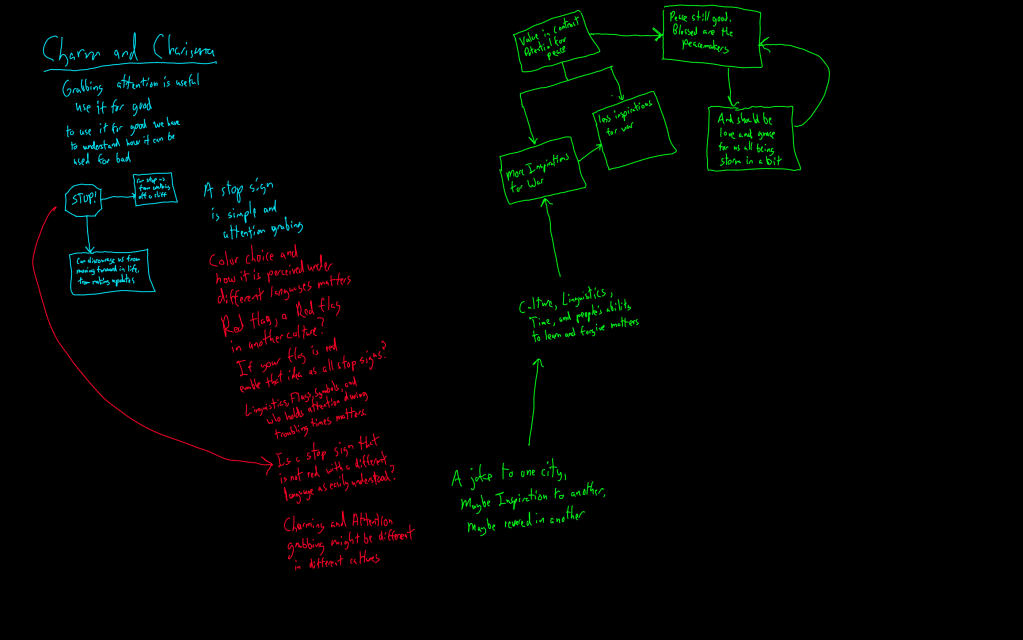 Charm and Charisma
Grabbing attention is useful
use it for good
to use it for good we have
to understand how it can be
used for bad
STOP!
Can stop us
from walking
off a cliff
Can discourage us from
moving forward in life,
from making updates
A stop sign
is simple and
attention grabing
Color choice and
how it is perceived under
different languages matters
Red flag, a Red flag
in another culture?
If your flag is red
enable that idea as all stop signs?
Linguistics, Flags, Symbols, and
who holds attention during
troubling times matters
Is a stop sign that
is not red with a different
language as easily understood?
Charming and Attention
grabbing might be different
in different cultures
Value in contrast
Potential for
peace
Peace still good.
Blessed are the
peacemakers
And should be
love and grace
for us all being
storm in a bit
less inspirations
for war
More Inspirations
for War
Culture, Linguistics,
Time, and people's ability
to learn and forgive matters
A joke to one city,
Maybe Inspiration to another,
Maybe revered in another